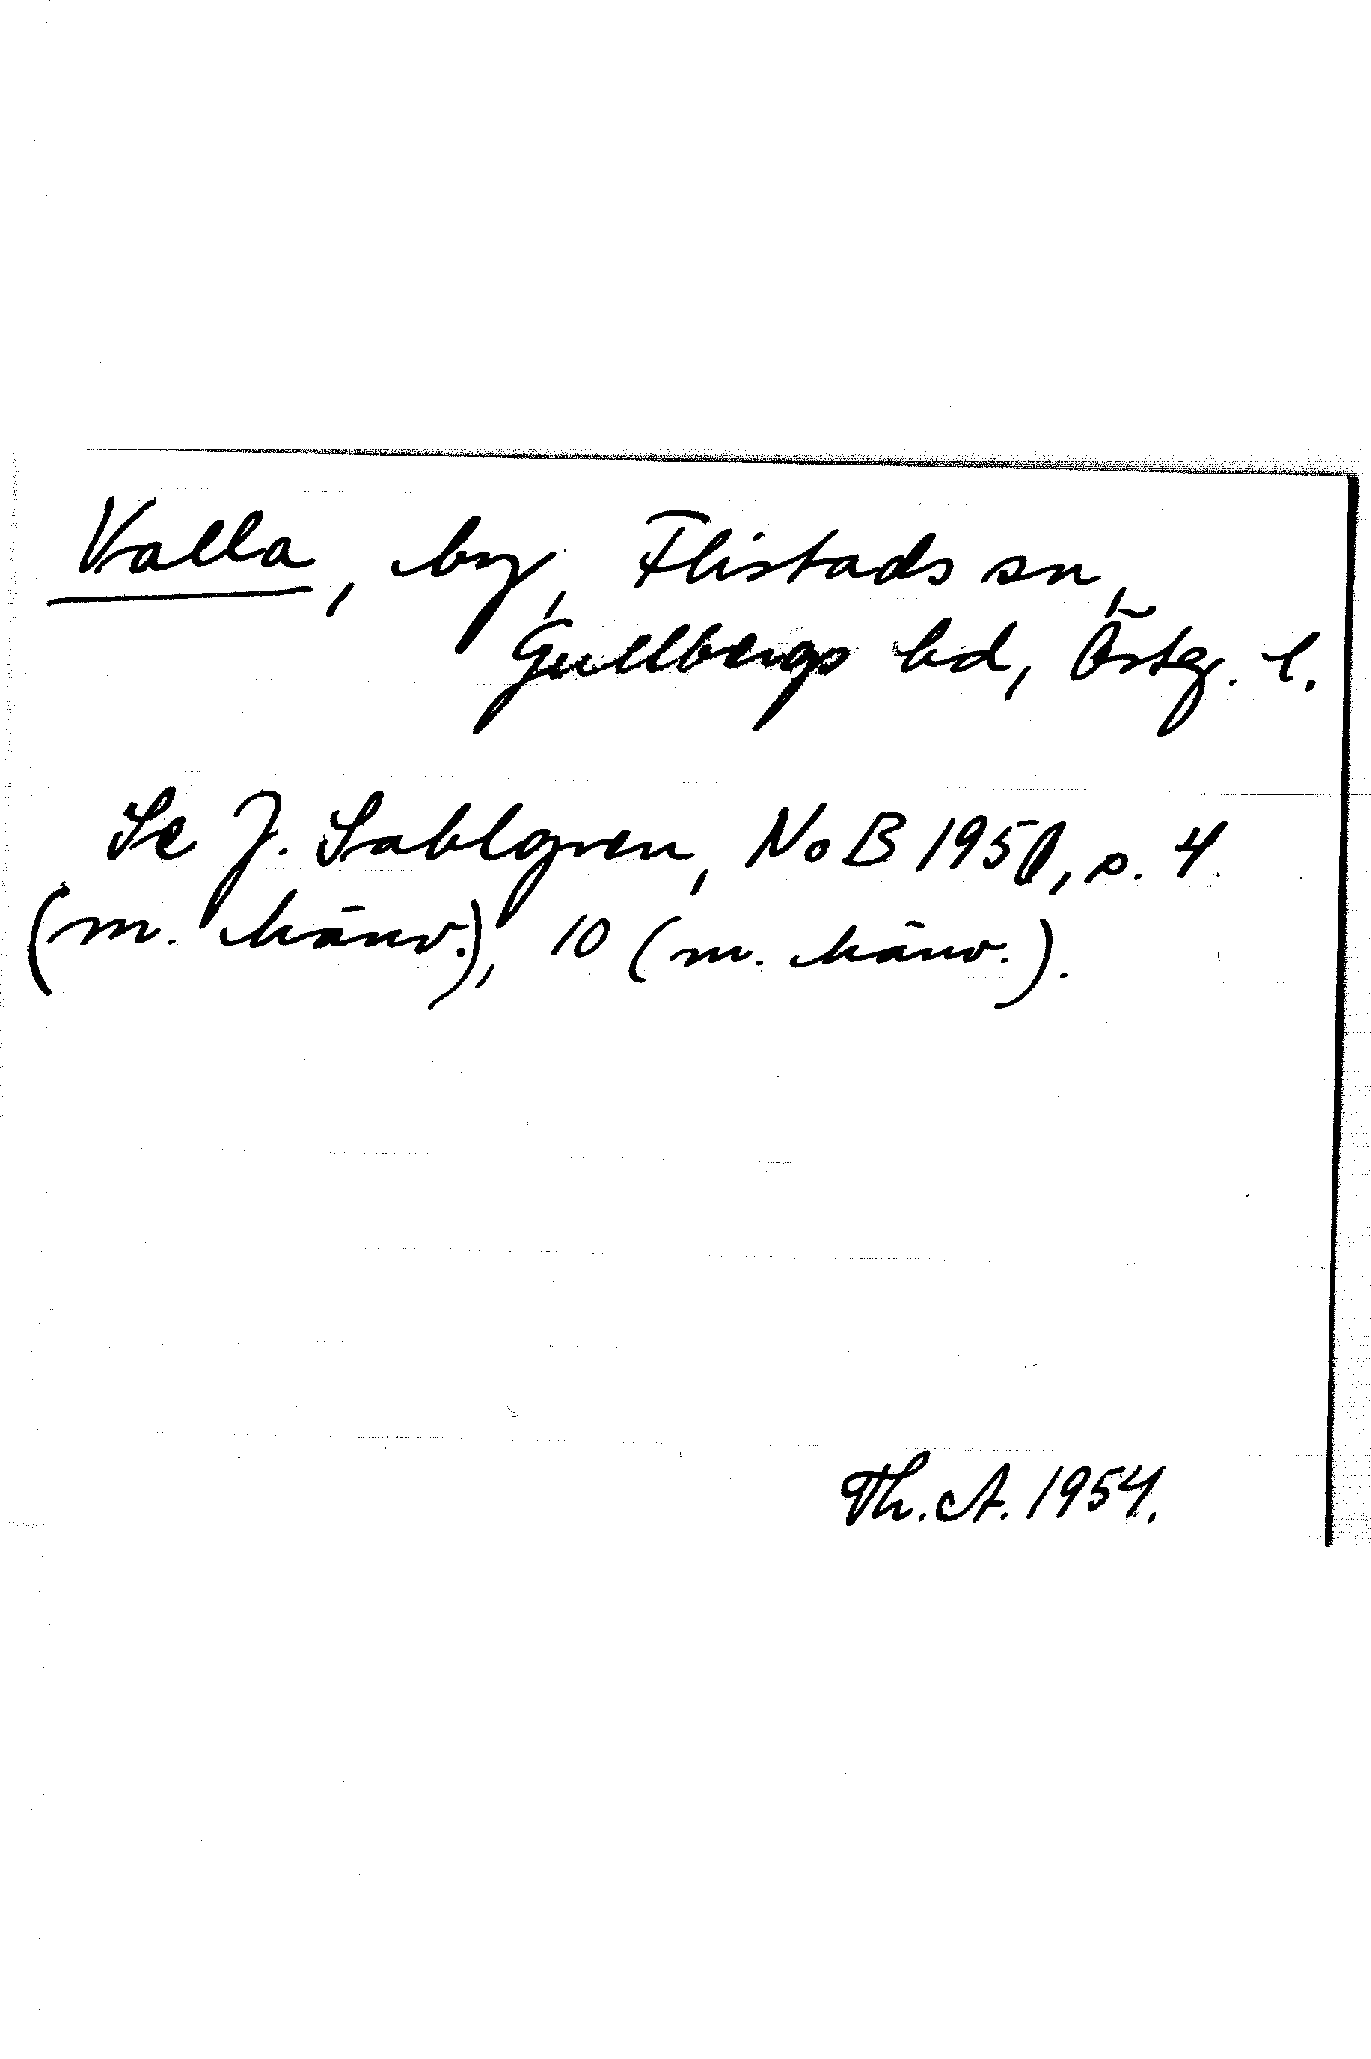 Valla, by, Flistads sn,
Gullbergs hd, Östg. l.
Se J. Sahlgren, NoB 1950, s. 4
(m. hänv.), 10 (m. hänv.).
Th. A. 1954.